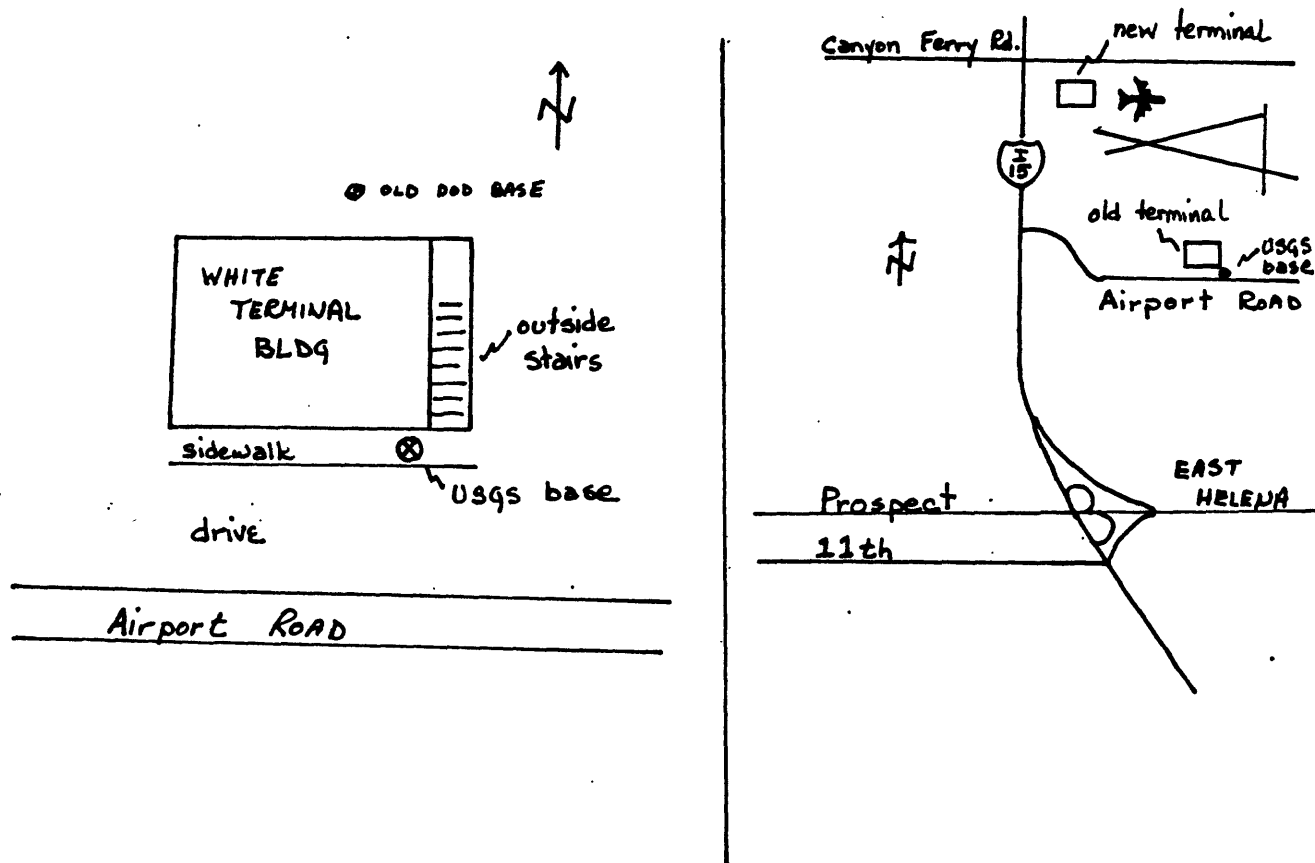 N
OLD DOD BASE
WHITE
TERMINAL
BLDG
outside
stairs
sidewalk
USGS base
drive
Airport ROAD
Canyon Ferry Rd.
new terminal
I
15
N
old terminal
USGS
base
Airport ROAD
EAST
HELENA
Prospect
11th